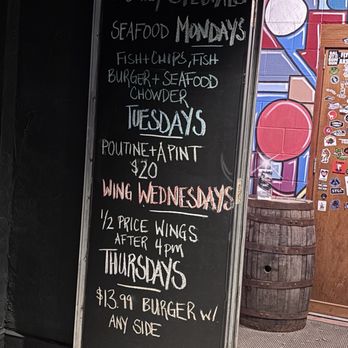 SEAFOOD MONDAYS
FISH+CHIPS, FISH
BURGER + SEAFOOD
CHOWDER
TUESDAYS
POUTINE+A PINT
$20
WING WEDNESDAYS
1/2 PRICE WINGS
AFTER 4pm
THURSDAYS
$13.99 BURGER W/
ANY SIDE